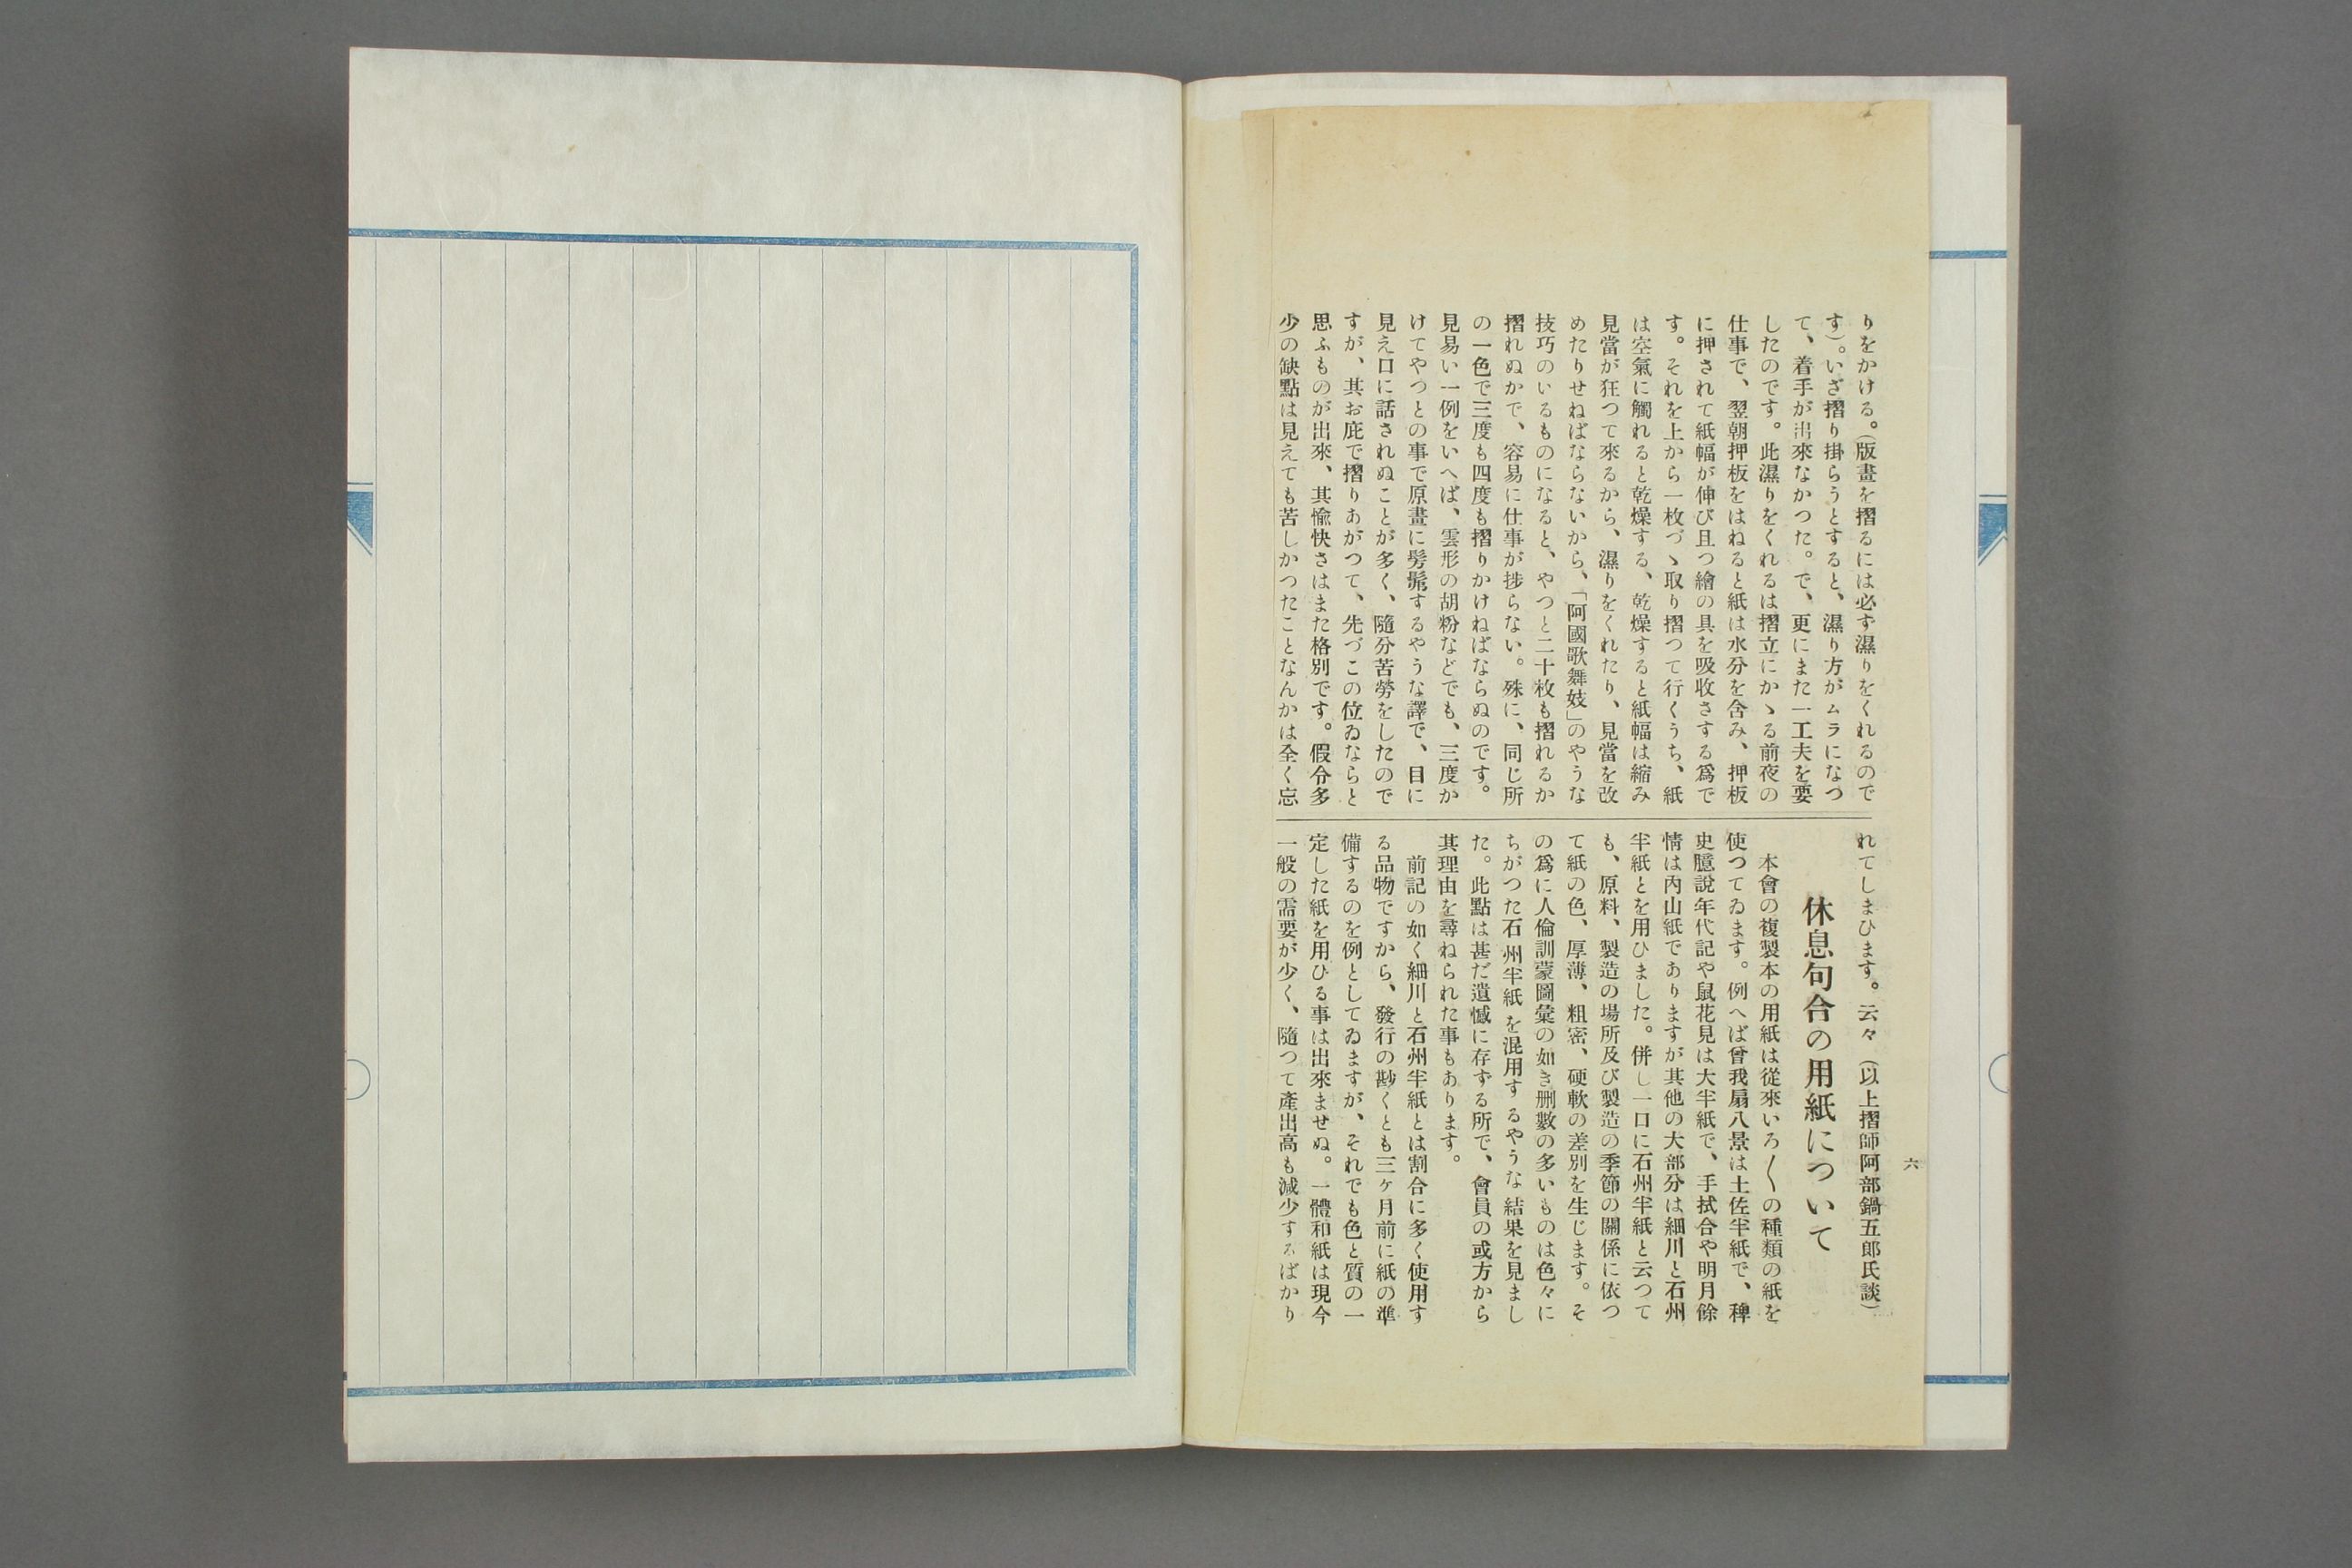 りをかける。（版畫を摺るには必ず濕りをくれるので
す）。いざ摺り掛らうとすると、濕り方がムラになつ
て、着手が出來なかつた。で、更にまた一工夫を要
したのです。此濕りをくれるは摺立にかゝる前夜の
仕事で、翌朝押板をはねると紙は水分を含み、押板
に押されて紙幅が伸び且つ繪の具を吸收さする爲で
す。それを上から一枚づゝ取り摺つて行くうち、紙
は空氣に觸れると乾燥する、乾燥すると紙幅は縮み
見當が狂つて來るから、濕りをくれたり、見當を改
めたりせねばならないから、「阿國歌舞妓」のやうな
技巧のいるものになると、やつと二十枚も摺れるか
摺れぬかで、容易に仕事が捗らない。殊に、同じ所
の一色で三度も四度も摺りかけねばならぬのです。
見易い一例をいへば、雲形の胡粉などでも、三度か
けてやつとの事で原畫に髣髴するやうな譯で、目に
見え口に話されぬことが多く、隨分苦勞をしたので
すが、其お庇で摺りあがつて、先づこの位ゐならと
思ふものが出來、其愉快さはまた格別です。假令多
少の缺點は見えても苦しかつたことなんかは全く忘
れてしまひます。云々（以上摺師阿部鍋五郎氏談）
休息句合の用紙について
本會の複製本の用紙は從來いろ〳〵の種類の紙を
使つてゐます。例へば曾我扇八景は土佐半紙で、稗
史臆說年代記や鼠花見は大半紙で、手拭合や明月餘
情は內山紙でありますが其他の大部分は細川と石州
半紙とを用ひました。併し一口に石州半紙と云つて
も、原料、製造の場所及び製造の季節の關係に依つ
て紙の色、厚薄、粗密、硬軟の差別を生じます。そ
の爲に人倫訓蒙圖彙の如き册數の多いものは色々に
ちがつた石州半紙を混用するやうな結果を見まし
た。此點は甚だ遺憾に存する所で、會員の或方から
其理由を尋ねられた事もあります。
前記の如く細川と石州半紙とは割合に多く使用す
る品物ですから、發行の尠くとも三ケ月前に紙の準
備するのを例としてゐますが、それでも色と質の一
定した紙を用ひる事は出來ませぬ。一體和紙は現今
一般の需要が少く、隨つて產出高も減少するばかり
六